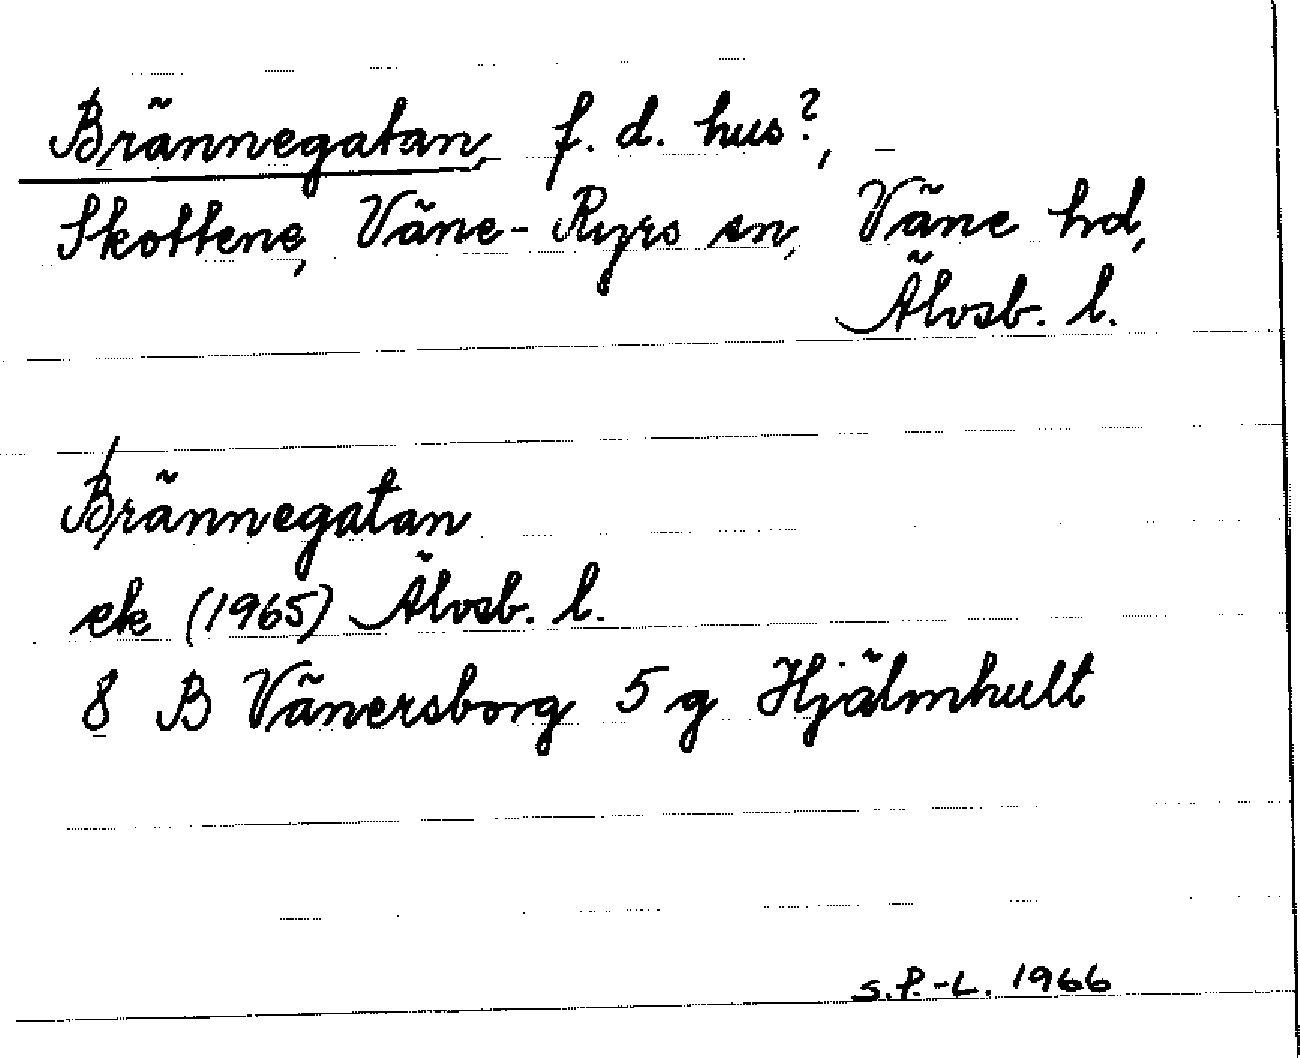 Brännegatan, f. d. hus?,
Skottene, Väne-Ryrs sn, Väne hd,
Älvsb. l.
Brännegatan
ek (1965) Älvsb. l.
8 B Vänersborg 5 g Hjälmhult
S.F.-L. 1966